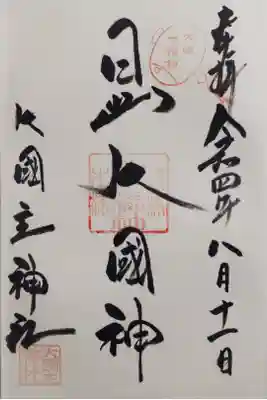 奉拝 令和四年八月十一日
日出大國神
大國主神社